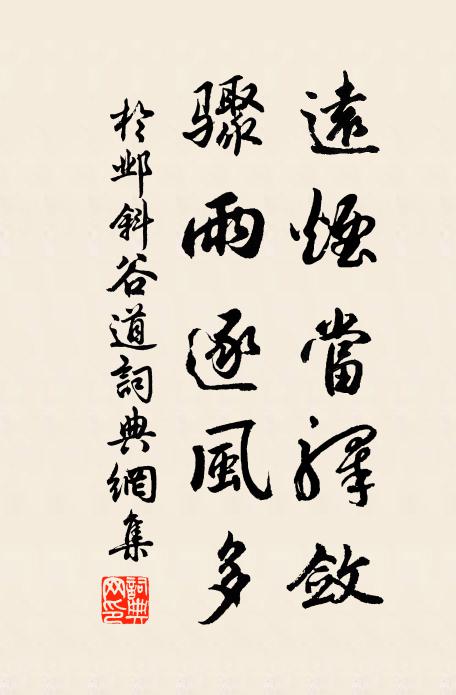 遠煙當驛斂
驟雨逐風多
於邺斜谷道詞典網集
詞典网印